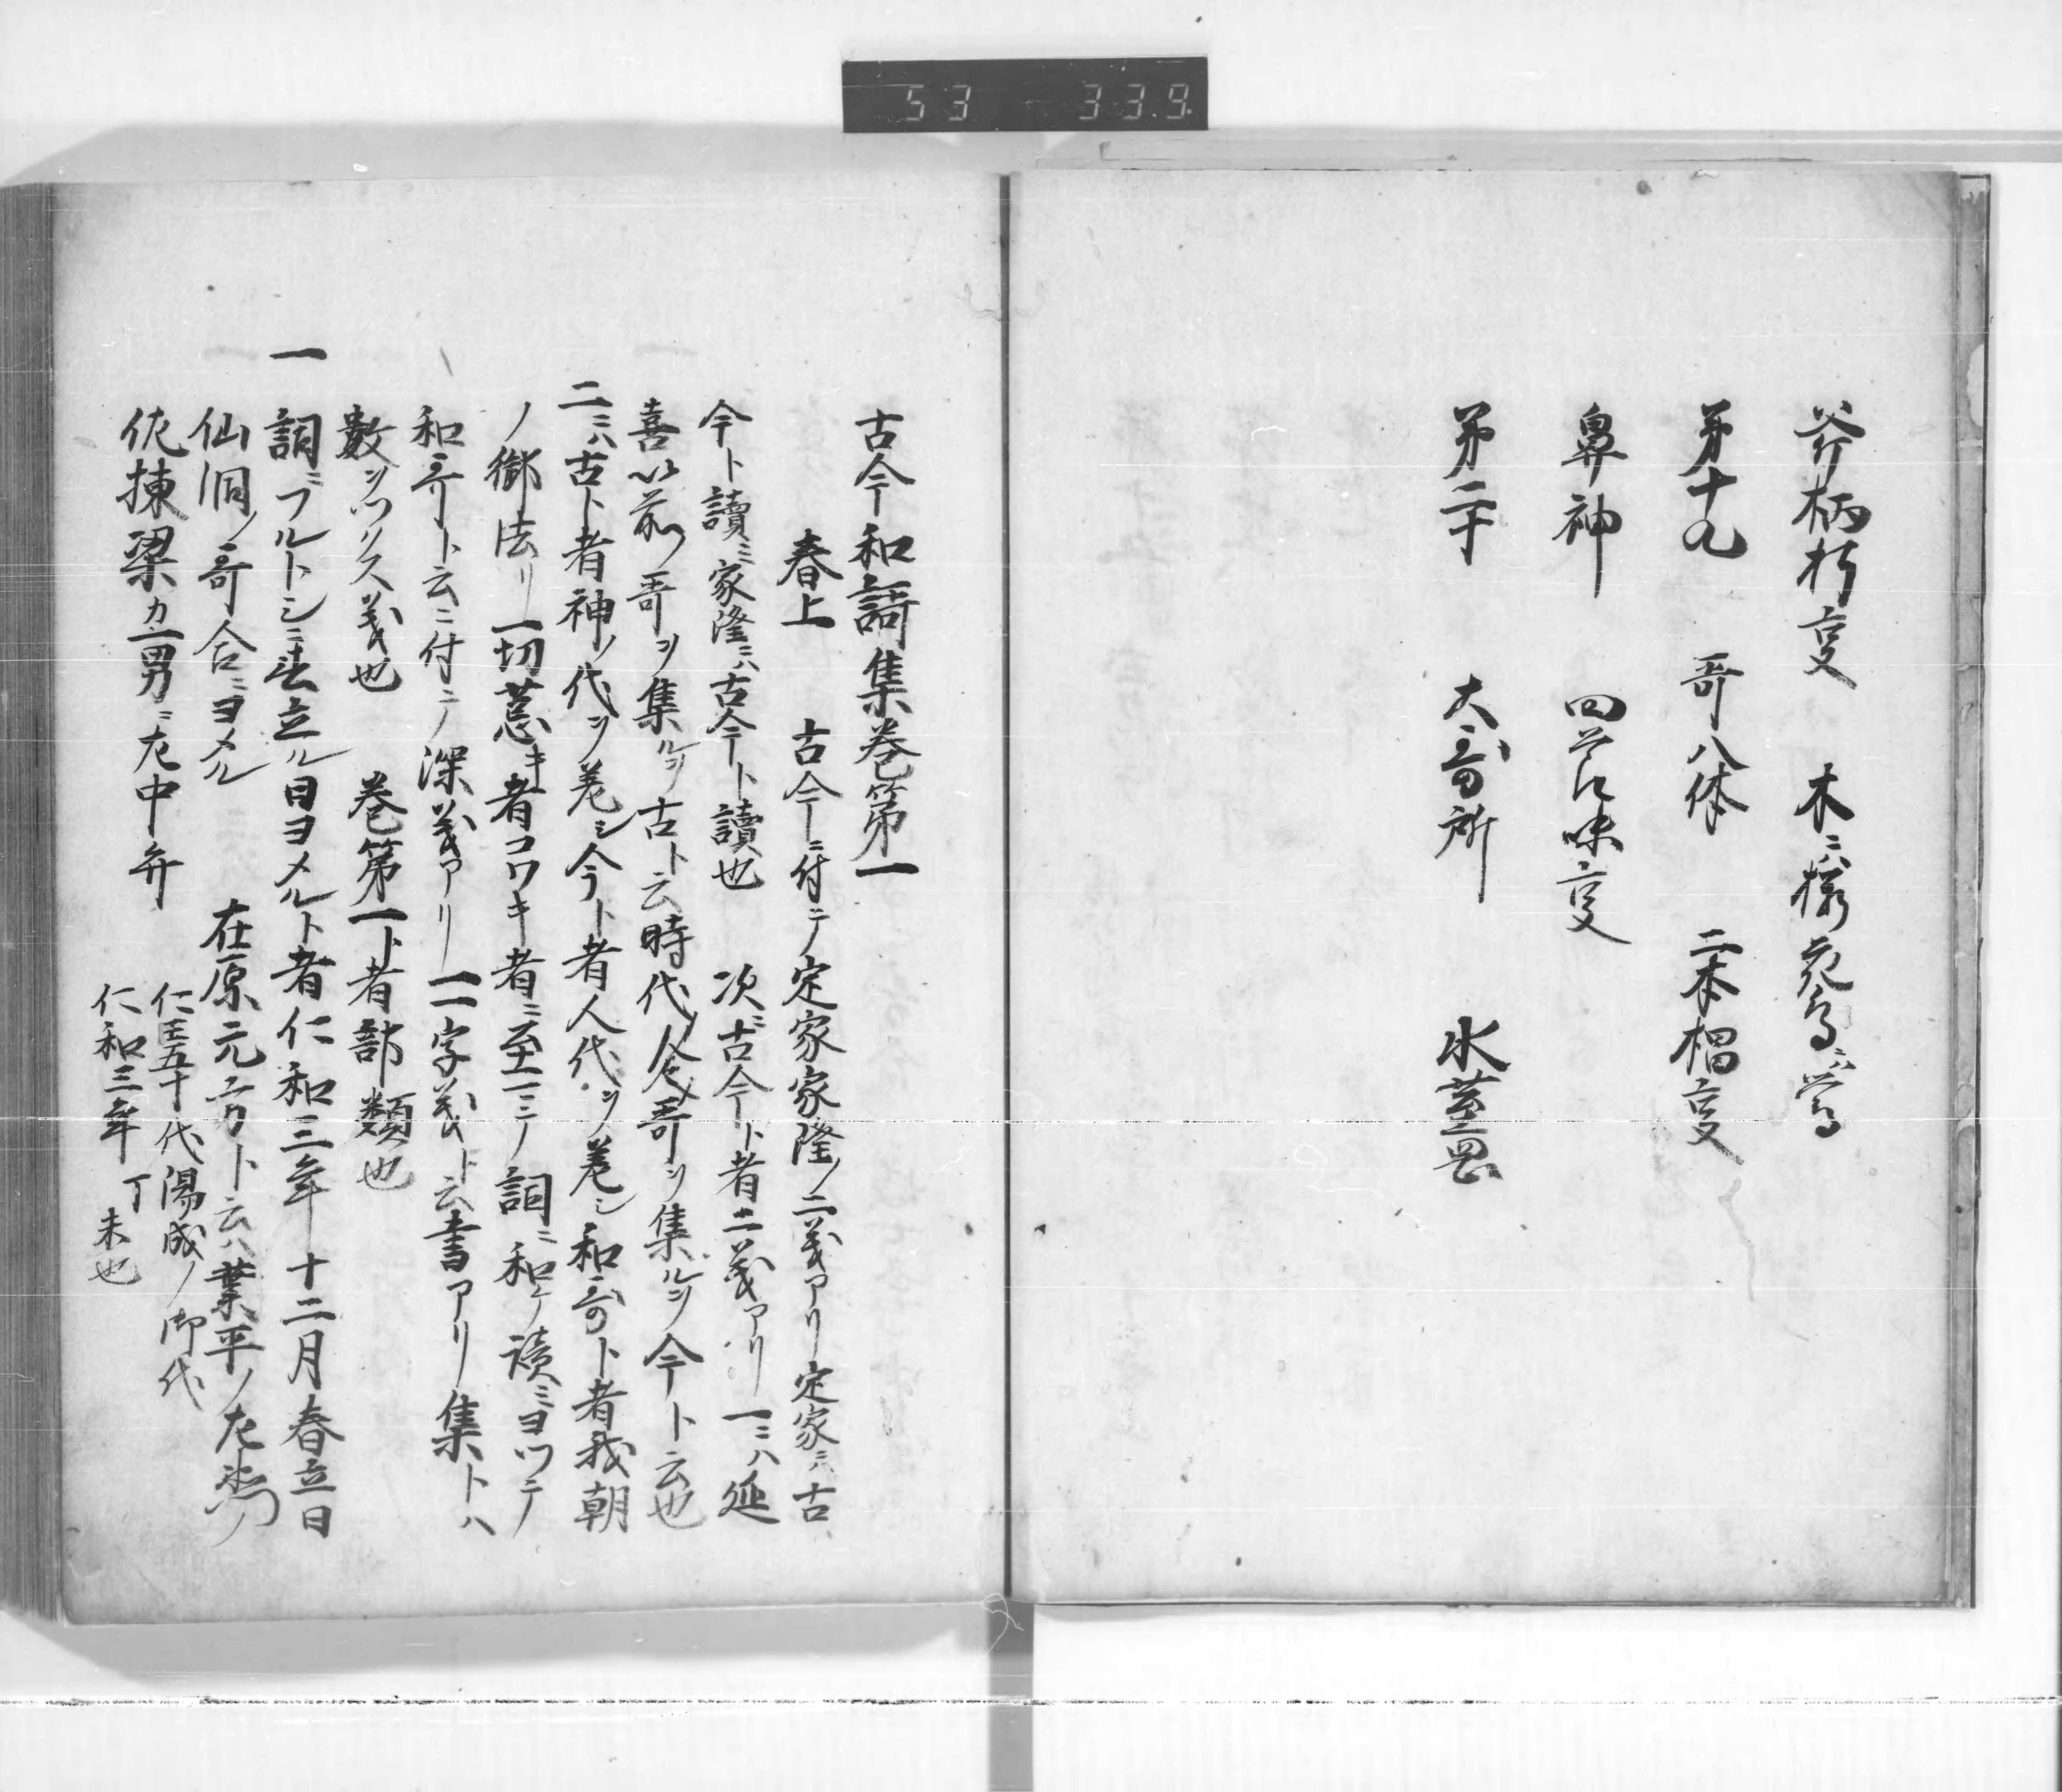 53 339
斧柄朽叓 木ニハ櫻花鳥ニハ鶯
第十九 哥八体 二本椙叓
鼻神 四𦬇味叓
第二十 大哥所 水莖岡
古今和謌集巻第一
春上 古今ニ付テ定家家隆ノ二義アリ定家ニハ古
今ト讀ミ家隆ニハ古今ト讀也 次ニ古今ト者二義アリ一ニハ延
喜以前ノ哥ヲ集ルヲ古ト云時代ノ哥ヲ集ルヲ今ト云也
二ニハ古ト者神ノ代ヲ差シ今ト者人代ヲ差シ和哥ト者我朝
ノ御法リ一切 キ者コワキ者ニ至ニテ詞ニ和ケ讀ミヨツテ
和哥ト云ニ付テ深義アリ一字義ト云書アリ集トハ
數ヲツリス義也 巻第一ト者部類也
一 詞ニフルトシニ春立ル日ヨメルト者仁和三年十二月春立日
仙洞ノ哥合ニヨメル 在原元方ト云ハ業平ノ左
佐棟梁カ二男ニ左中弁 仁王五十代陽成ノ御代
仁和三年丁未也